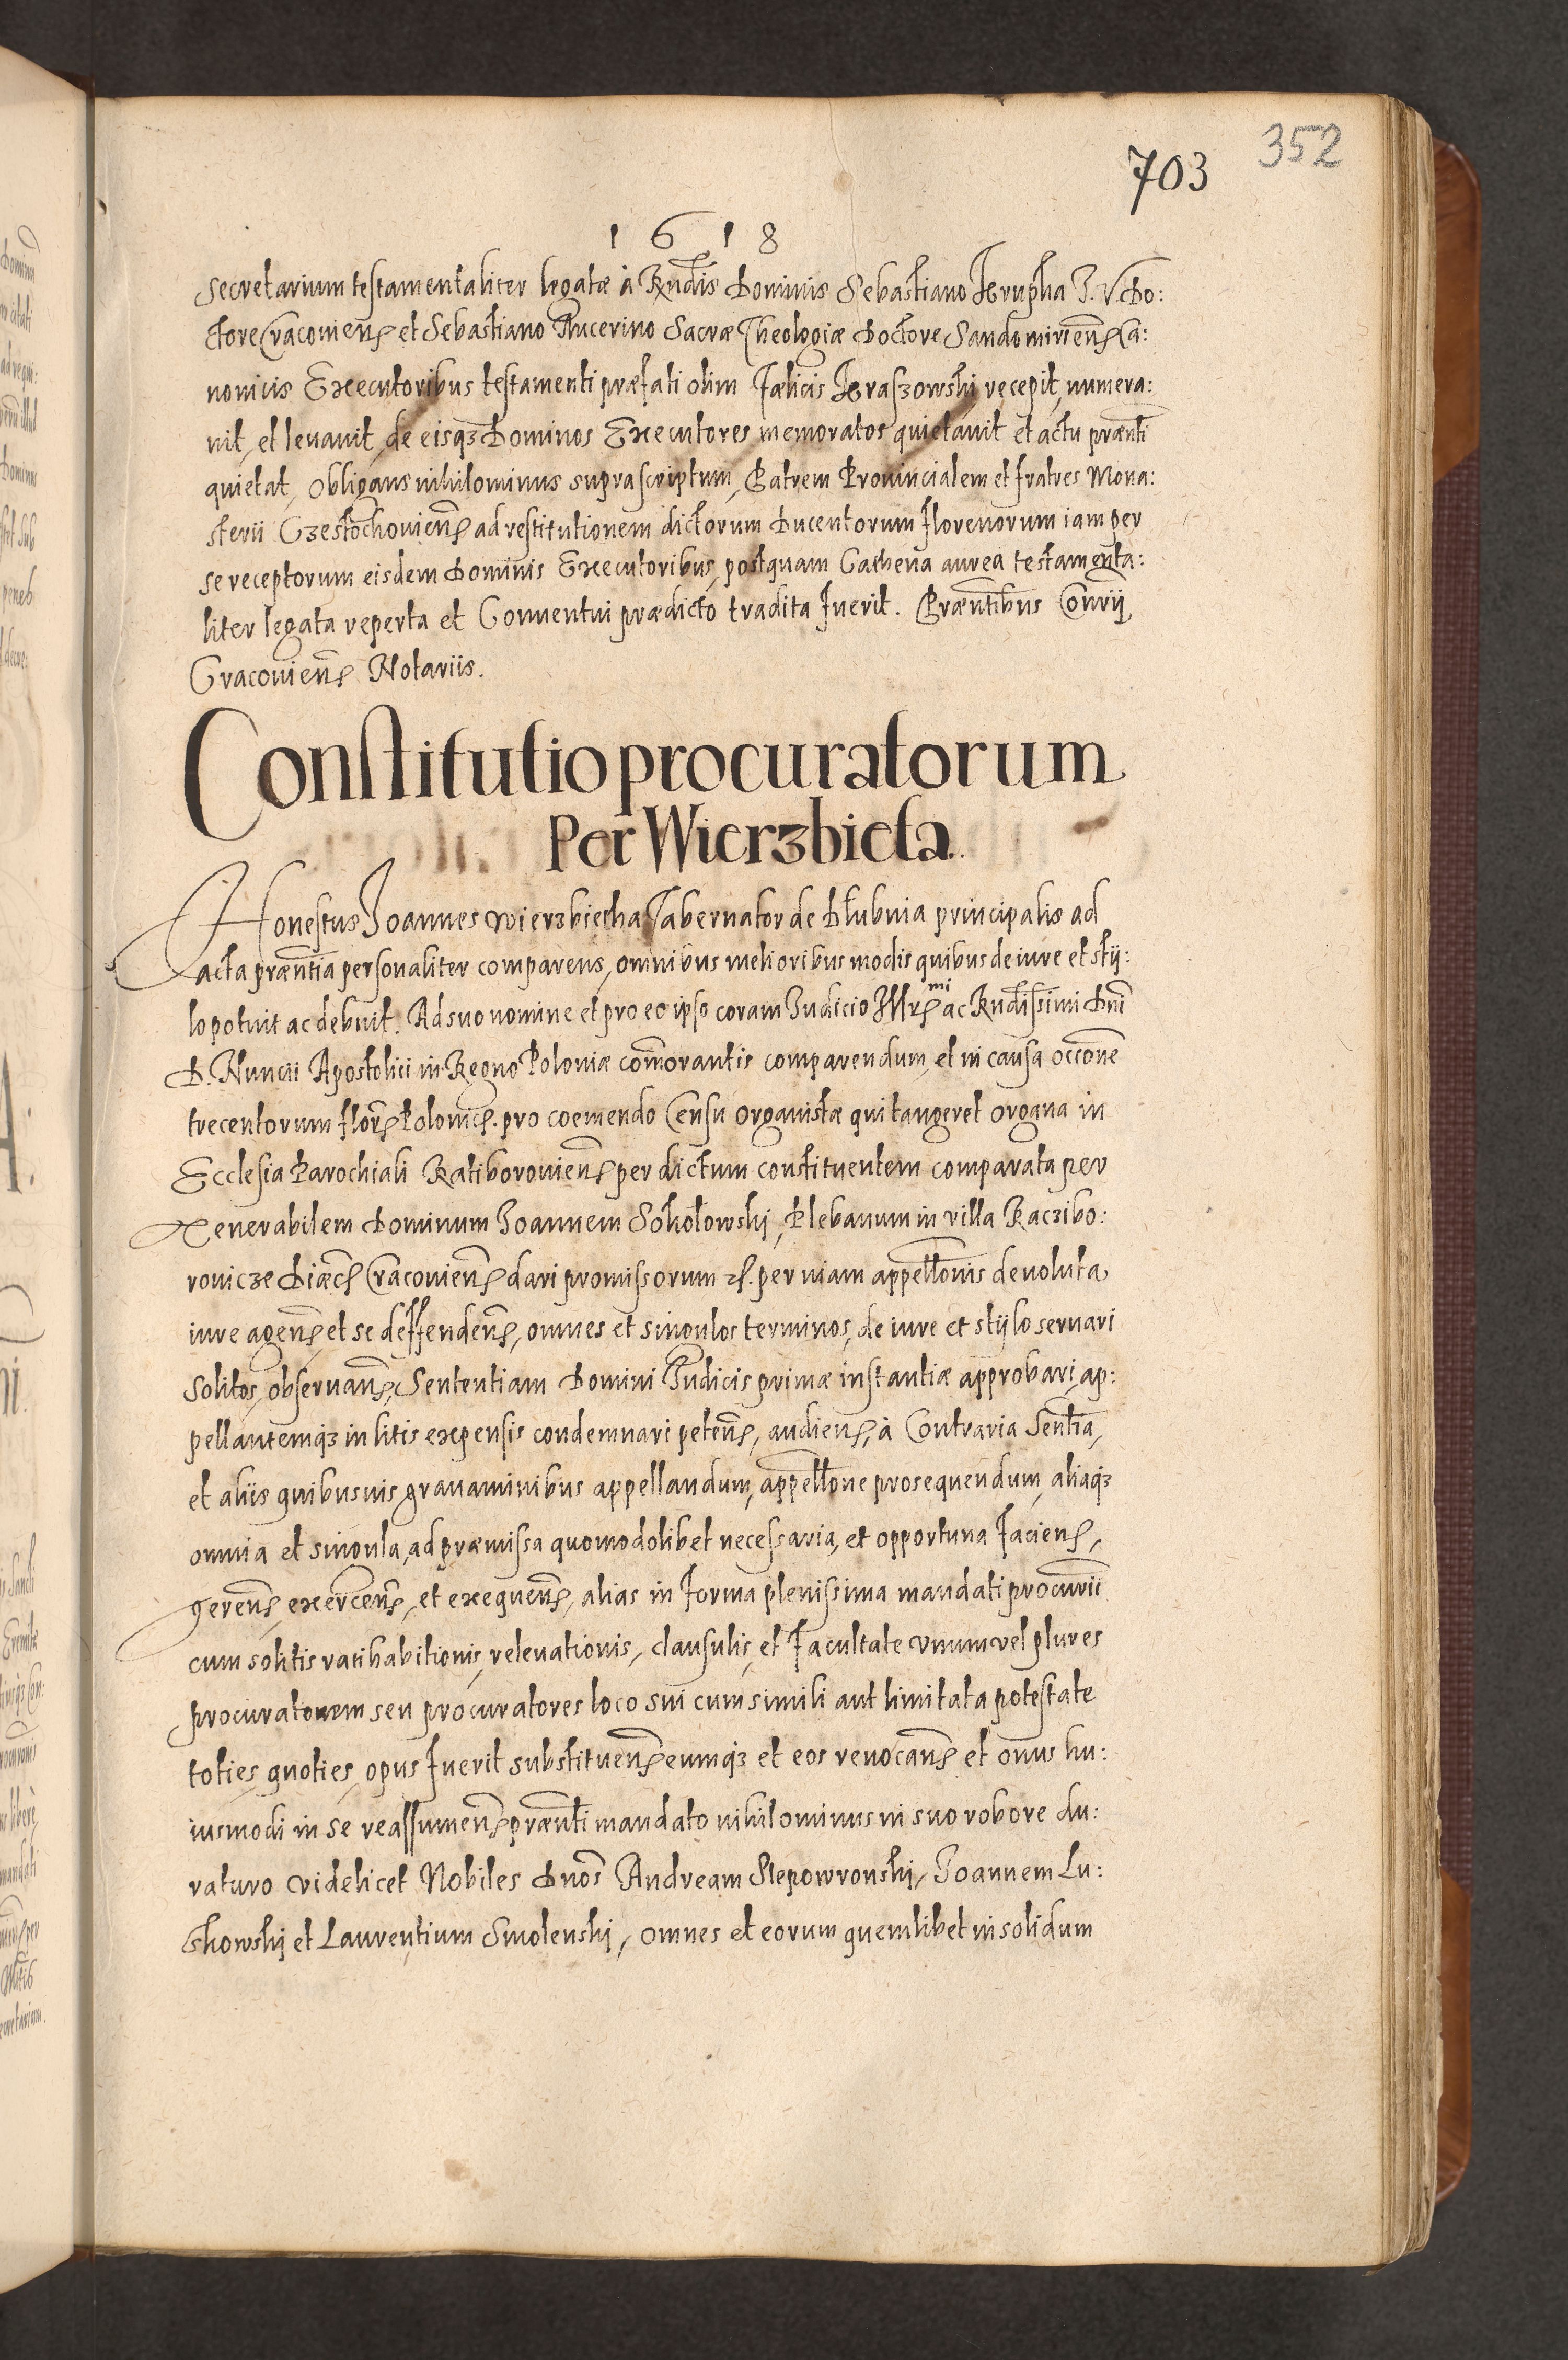 352
703
1618
secretarium testamentaliter legatæ à Rndis Dominis Sebastiano Krupka I. V. Do:
ctore Cracouien et Sebastiano Nucerino Sacræ Theologiæ Doctore Sandomirien Ca:
nonicis Executoribus testamenti præfati olim Fælicis Kraszowski recepit, numera:
uit, et leuauit, de eisqz Dominos Executores memoratos quietauit et actu præntí
quietat, obligans nihilominus suprascriptum, Patrem Prouincialem et fratres Mona:
sterii Czestochouien ad restitutionem dictorum Ducentorum florenorum iam per
se receptorum eisdem Dominis Executoribus, postquam Cathena aurea testamenta:
liter legata reperta et Conuentui prædicto tradita fuerit. Præntibus Consrij
Cracouien Notariis.
Constitutio procuratorum
Per Wierzbieta.
Honestus Joannes Wierzbietha Tabernator de Dłubnia principalis ad
acta præntia personaliter comparens, omnibus melioribus modis quibus de iure et stÿ:
lo potuit ac debuit. Ad suo nomine et pro eo ipso coram Judicio Illrmi ac Rndissimi Dni
D. Nuncii Apostolici in Regno Poloniæ comorantis comparendum, et in causa occone
trecentorum flor Polonic. pro coemendo Censu organistæ qui tangeret organa in
Ecclesia Parochiali Ratiborouien per dictum constituentem comparata per
Venerabilem Dominum Joannem Sokołowski, Plebanum in villa Raczibo:
rouicze Diæc Cracouien dari promissorum etc. per viam appellonis deuoluta
iure agen, et se deffenden, omnes et singulos terminos, de iure et stÿlo seruari
solitos, obseruan, Sententiam Domini Judicis primæ instantiæ approbari, ap:
pellantemqz in litis expensis condemnari peten, audien, à Contraria Sentia,
et aliis quibusuis grauaminibus appellandum, appellone prosequendum, aliaqz
omnia et singula, ad præmissa quomodolibet necessaria, et opportuna facien,
geren, exercen, et exequen, alias in forma plenissima mandati procurii
cum solitis ratihabitionis, releuationis, clausulis, et facultate vnum vel plures
procuratorem seu procuratores loco sui cum simili aut limitata potestate
toties, quoties, opus fuerit substituen eumqz et eos reuocan et onus hu:
iusmodi in se reassumen, prænti mandato nihilominus in suo robore du:
raturo videlicet Nobiles Dnos Andream Slepowronski, Joannem Lu:
skowski et Laurentium Smolenski, omnes et eorum quemlibet in solidum